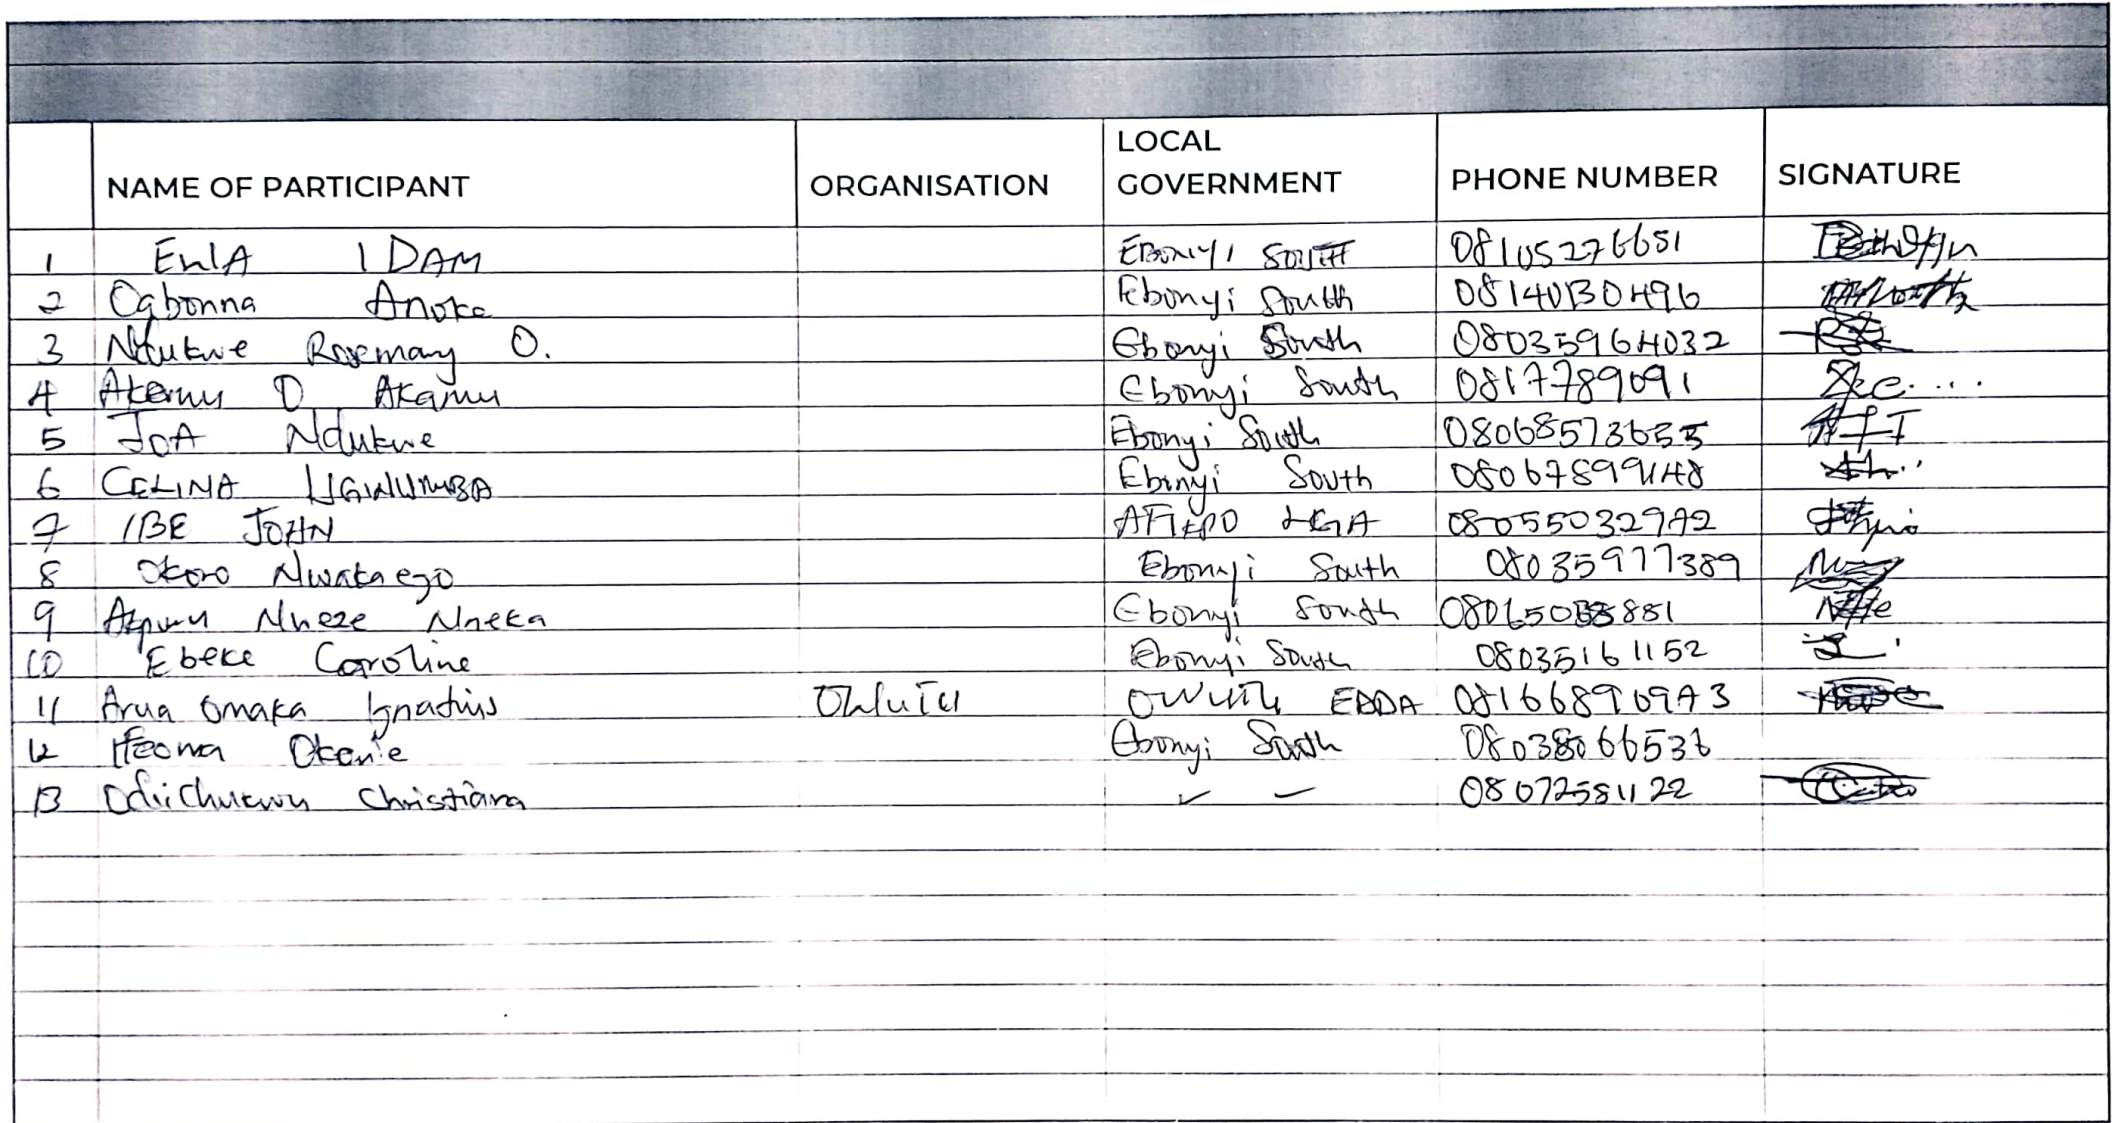 NAME OF PARTICIPANT ORGANISATION LOCAL GOVERNMENT PHONE NUMBER SIGNATURE
1 EnIA IDAM EBONYI SOUTH 08105276651
2 Ogbonna Anoke Ebonyi South 08140130496
3 Ndukwe Rosemary O. Ebonyi South 08035964032
4 Akamu O Akamu Ebonyi South 0817789091
5 JOA Ndukwe Ebonyi South
6 CELINA Ebonyi South
7 IBE JOHN AFIKPO LGA 08055032942
8 Okoro Nwakaego Ebonyi South 08035977389
9 Nneka Ebonyi South
10 Ebeke Caroline Ebonyi South 08035161152
11 Arua Omaka Ignatius Owutu Owutu EDDA
12 Ifeoma Okorie Ebonyi South 08038066536
13 Odiichukwu Christiana 08072581122